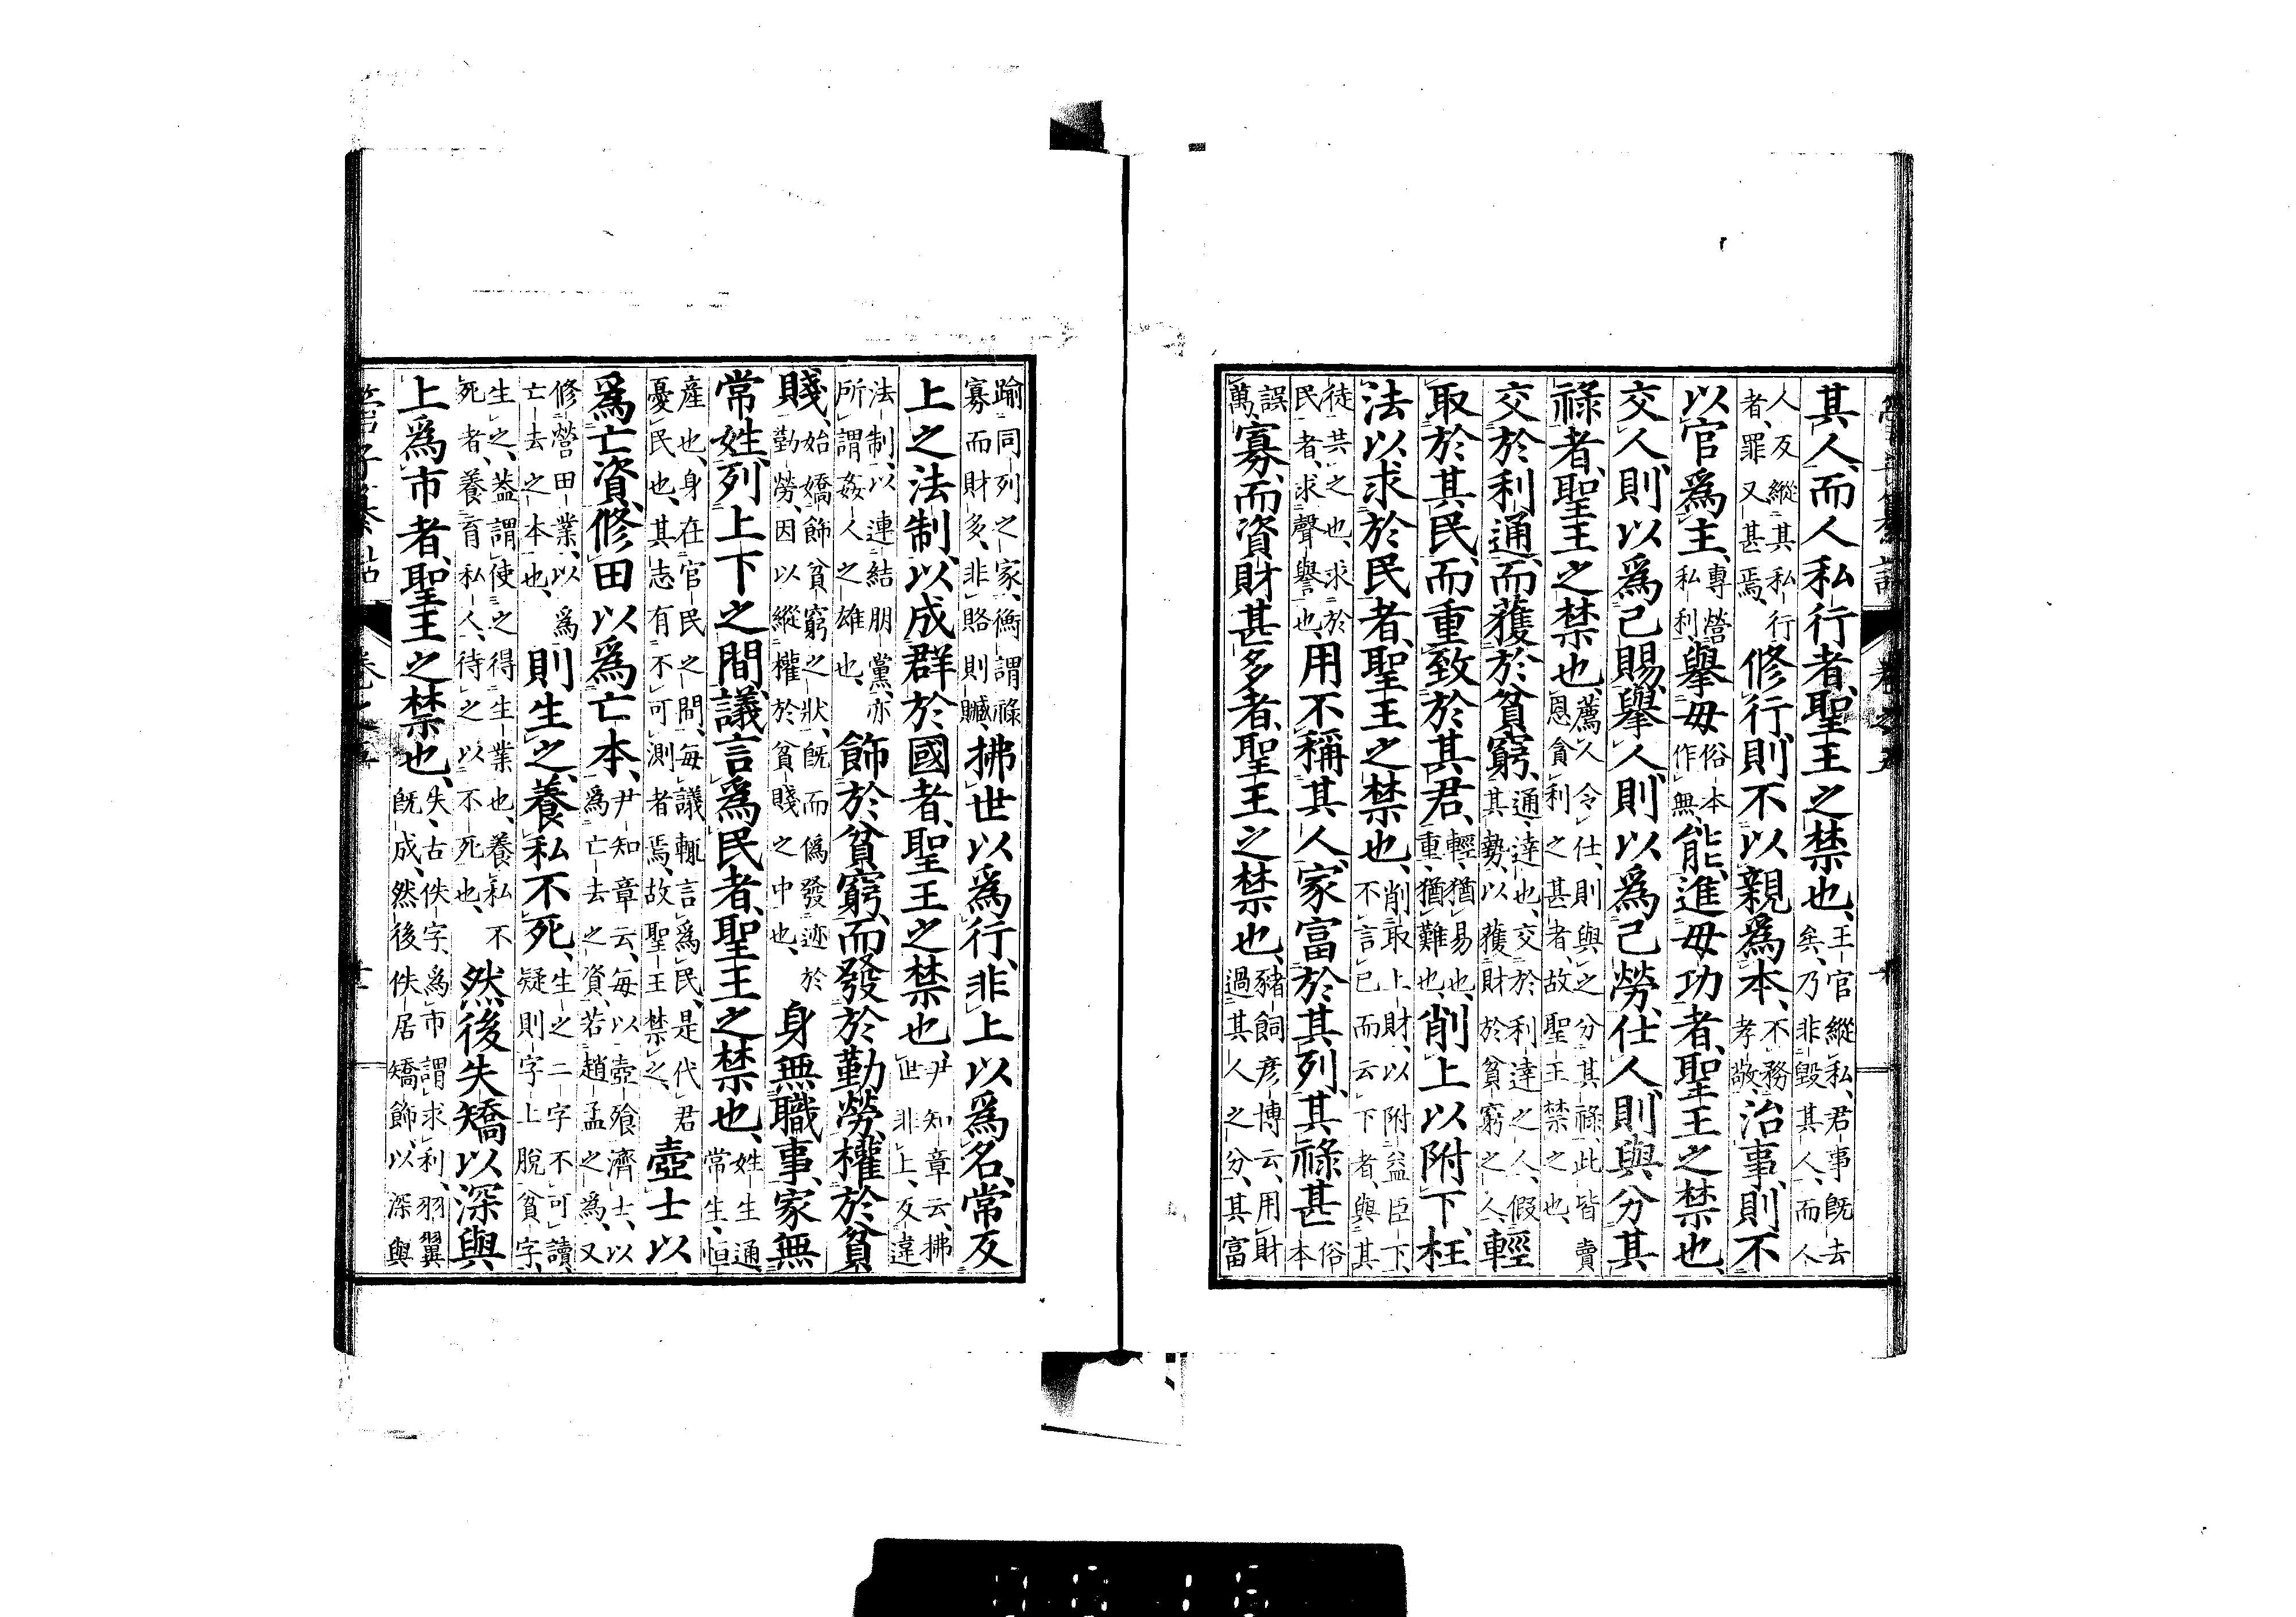 其人、而人私行者、聖王之禁也、王官縱私、君事既去矣、乃非毀其人、而人
人反縱其私行者、罪又甚焉、修行則不以親爲本、不務孝敬、治事、則不
以官爲主、專營私利、舉毋俗本作無、能、進毋功者、聖王之禁也、
交人則以爲己賜、舉人則以爲己勞、仕人則與分其
祿者、聖王之禁也、薦人令仕、則與之分其祿、此皆賣恩貪利之甚者、故聖王禁之也、
交於利通、而獲於貧窮、通、達也、交於利達之人、假其勢、以獲財於貧窮之人、輕
取於其民、而重致於其君、輕、猶易也、重、猶難也、削上以附下、枉
法以求於民者、聖王之禁也、削取上財、以附益臣下、不言已而云下者、與其
徒共之也、求於民者、求聲譽也、用不稱其人、家富於其列、其祿甚俗本
誤萬、寡、而資財甚多者、聖王之禁也、豬飼彦博云、用財過其人之分、其富
踰同列之家、衡謂祿寡而財多、非賂則贓、拂世以爲行、非上以爲名、常反
上之法制、以成群於國者、聖王之禁也、尹知章云、拂世非上、反違
法制、以連結朋黨、亦所謂姦人之雄也、飾於貧窮、而發於勤勞、權於貧
賤、始嬌飾貧窮之狀、既而僞發迹於勤勞、因以縱權於貧賤之中也、身無職事、家無
常姓、列上下之間、議言爲民者、聖王之禁也、姓生通、常生、恒
產也、身在官民之間、每議輒言爲民、是代君憂民也、其志有不可測者焉、故聖王禁之、壺士以
爲亡資、修田以爲亡本、尹知章云、每以壺飧濟士、以爲亡去之資、若趙孟之爲、又
修營田業、以爲亡去之本也、則生之養私不死、生之二字不可讀、疑則字上脫貧字、
生之、蓋謂使之得生業也、養私不死者、養育私人、待之以不死也、然後失矯以深與
上爲市者、聖王之禁也、失、古佚字、爲市謂求利、羽翼既成、然後佚居矯飾、以深與